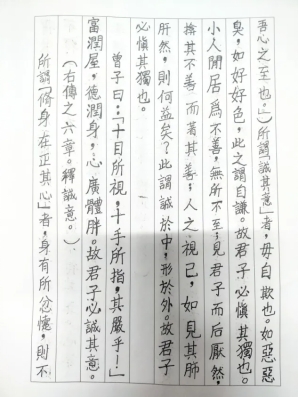 吾心之至也。」）所謂「誠其意」者，毋自欺也。如惡惡
臭，如好好色，此之謂自謙。故君子必慎其獨也。
小人閒居為不善，無所不至；見君子而后厭然，
揜其不善，而著其善；人之視己，如見其肺
肝然，則何益矣？此謂誠於中，形於外。故君子
必慎其獨也。
曾子曰：「十目所視，十手所指，其嚴乎！」
富潤屋，德潤身，心廣體胖。故君子必誠其意。
（右傳之六章。釋誠意。）
所謂「脩身在正其心」者，身有所忿懥，則不